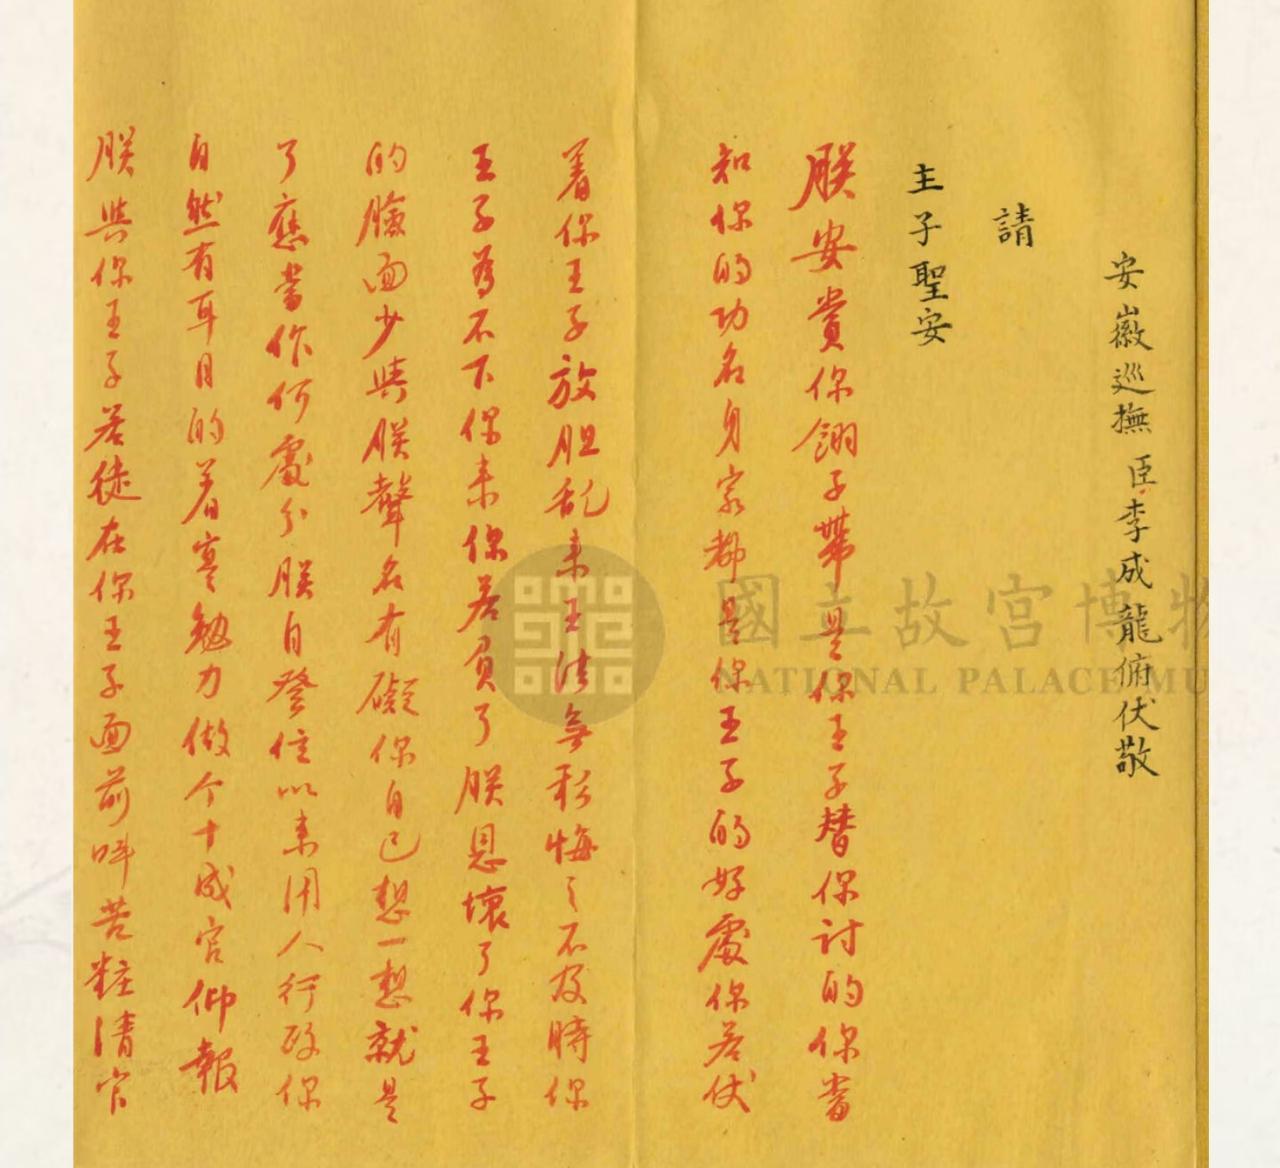 安徽巡撫臣李成龍俯伏敬
請
主子聖安
朕安賞你翎子帶是你王子替你討的你當
知你的功名身家都是你王子的好處你若仗
着你王子放胆乱来王法無私悔之不及時你
王子為不下你来你若負了朕恩壞了你王子
的臉面少與朕聲名有礙你自己想一想就是
了應當作何處分朕自登位以来用人行政你
自然有耳目的着實勉力做个十成官仰報
朕與你王子若徒在你王子面前呌苦粧清官
國立故宮博物
NATIONAL PALACE MU